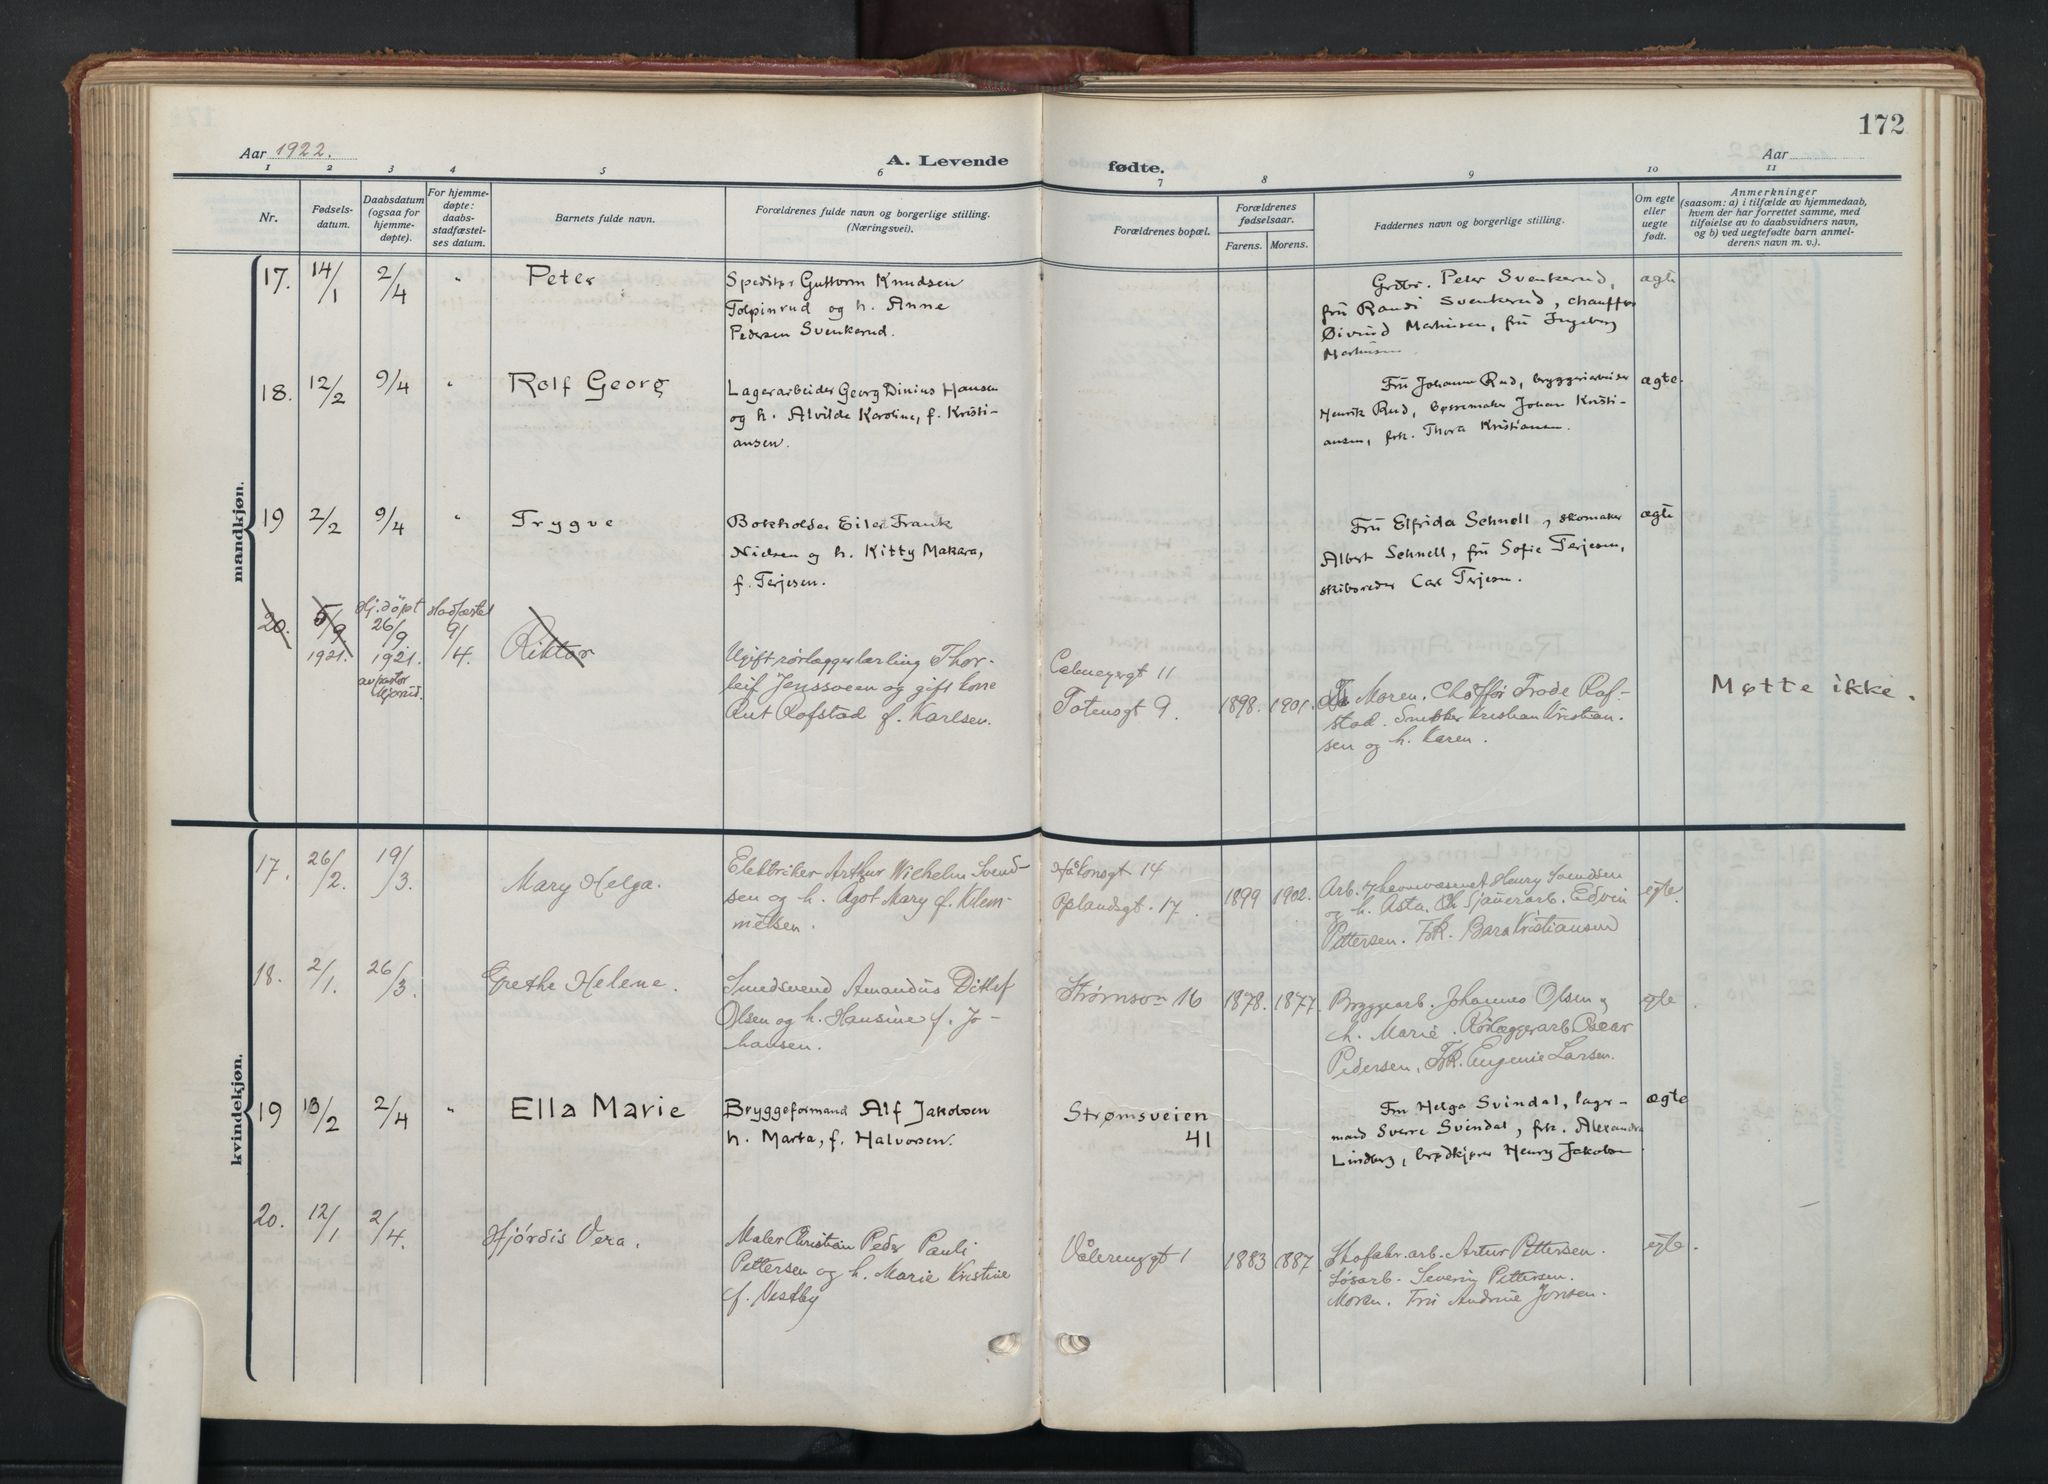 172
Aar 1922.
A. Levende
fødte.
Aar
1 2 3 4 5 6 7 8 9 10 11
Nr.
Fødsels-
datum.
Daabsdatum
(ogsaa for
hjemme-
døpte).
For hjemme-
døpte:
daabs-
stadfæstel-
ses datum.
Barnets fulde navn.
Forældrenes fulde navn og borgerlige stilling.
(Næringsvei).
Forældrenes bopæl.
Forældrenes
fødselsaar.
Farens. Morens.
Faddernes navn og borgerlige stilling.
Om egte
eller
uegte
født.
Anmerkninger
(saasom: a) i tilfælde av hjemmedaab,
hvem der har forrettet samme, med
tilføielse av to daabsvidners navn,
og b) ved uegtefødte barn anmel-
derens navn m. v.).
mandkjøn.
17. 14/1 2/4 " Peter
Speditør Guttorm Knudsen
Tolpinrud og h. Anne
Pedersen Svenkerud.
Grdbr. Peter Svenkerud,
fru Randi Svenkerud, chauffør
Øivind Markusen, fru Ingeborg
Markusen
ægte
18. 12/2 9/4 " Rolf Georg
Lagerarbeider Georg Dinius Hansen
og h. Alvilde Karoline, f. Kristi-
ansen.
Fru Johanne Rud, bryggeriarbeider
Henrik Rud, børsemaker Johan Kristi-
ansen, frk. Thora Kristiansen.
ægte.
19 2/2 9/4 " Trygve
Bokholder Eiler Frank
Nielsen og h. Kitty Makara,
f. Terjesen.
Fru Elfrida Schnell, skomaker
Albert Schnell, fru Sofie Terjesen,
skibsreder Carl Terjesen.
ægte
20. 5/9 1921. Hj. døpt 26/9 1921. av pastor stadfæstet 9/4. Riktor
Ugift rørlæggerlærling Thor-
leif Jenssveen og gift kone
Rut Rofstad f. Karlsen.
Calmeyergt 11
Totensgt 9.
1898. 1901.
Moren. Chaffør Frode Rof-
stad. Snekker Kristian Kristian-
sen og h. Karen.
Møtte ikke.
kvindekjøn.
17. 26/2. 19/3. Mary Helga.
Elektriker Arthur Wilhelm Svend-
sen og h. Agot Mary f. Klem-
metsen.
Håkonsgt 14
Oplandsgt. 17.
1899 1902.
Arb. v. havnvæsenet Henry Svendsen
og h. Asta. Sjauerarb. Edvin
Pettersen. Frk. Bara Kristiansen
egte.
18. 2/1. 26/3. Grethe Helene.
Smedsvend Amandus Ditlef
Olsen og h. Hansine f. Jo-
hansen.
Strømsvn 16
1878. 1877.
Bryggearb. Johannes Olsen og
h. Marie. Rørlæggerarb. Oscar
Pedersen, Frk. Eugenie Larsen.
egte.
19 13/2 2/4 " Ella Marie
Bryggeformand Alf Jakobsen
h. Marta, f. Halvorsen.
Strømsveien
41
Fru Helga Svindal, lager-
mand Sverre Svendal, frk. Alexandra
Lindberg, brødkjører Henry Jakobsen
ægte
20. 12/1 2/4. Hjördis Vera.
Maler Christian Peder Pauli
Pettersen og h. Marie Kristine
f. Vestby
Vålerenggt 1
1883 1887.
Skofabr. arb. Artur Pettersen.
Løsarb. Severin Pettersen.
Moren. Fru Andrine Jonsen.
egte.